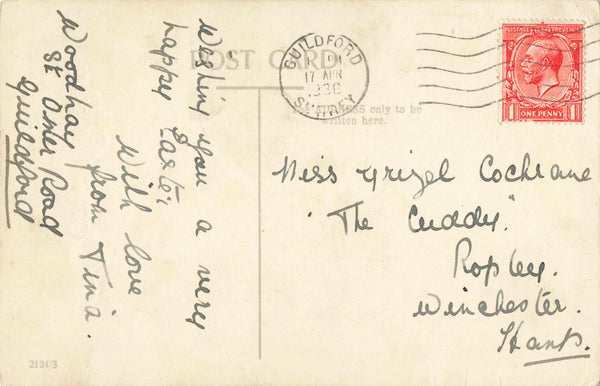 POST CARD
GUILDFORD
PM
17 APR
SURREY
POSTAGE REVENUE
ONE PENNY
1 1
ADDRESS only to be
written here.
Wishing you a very
happy Easter
With love
from Tina.
Woodhay
St Omer Road
Guildford
Miss Grizel Cochrane
"The Cuddy"
Ropley.
Winchester.
Hants.
2124/3